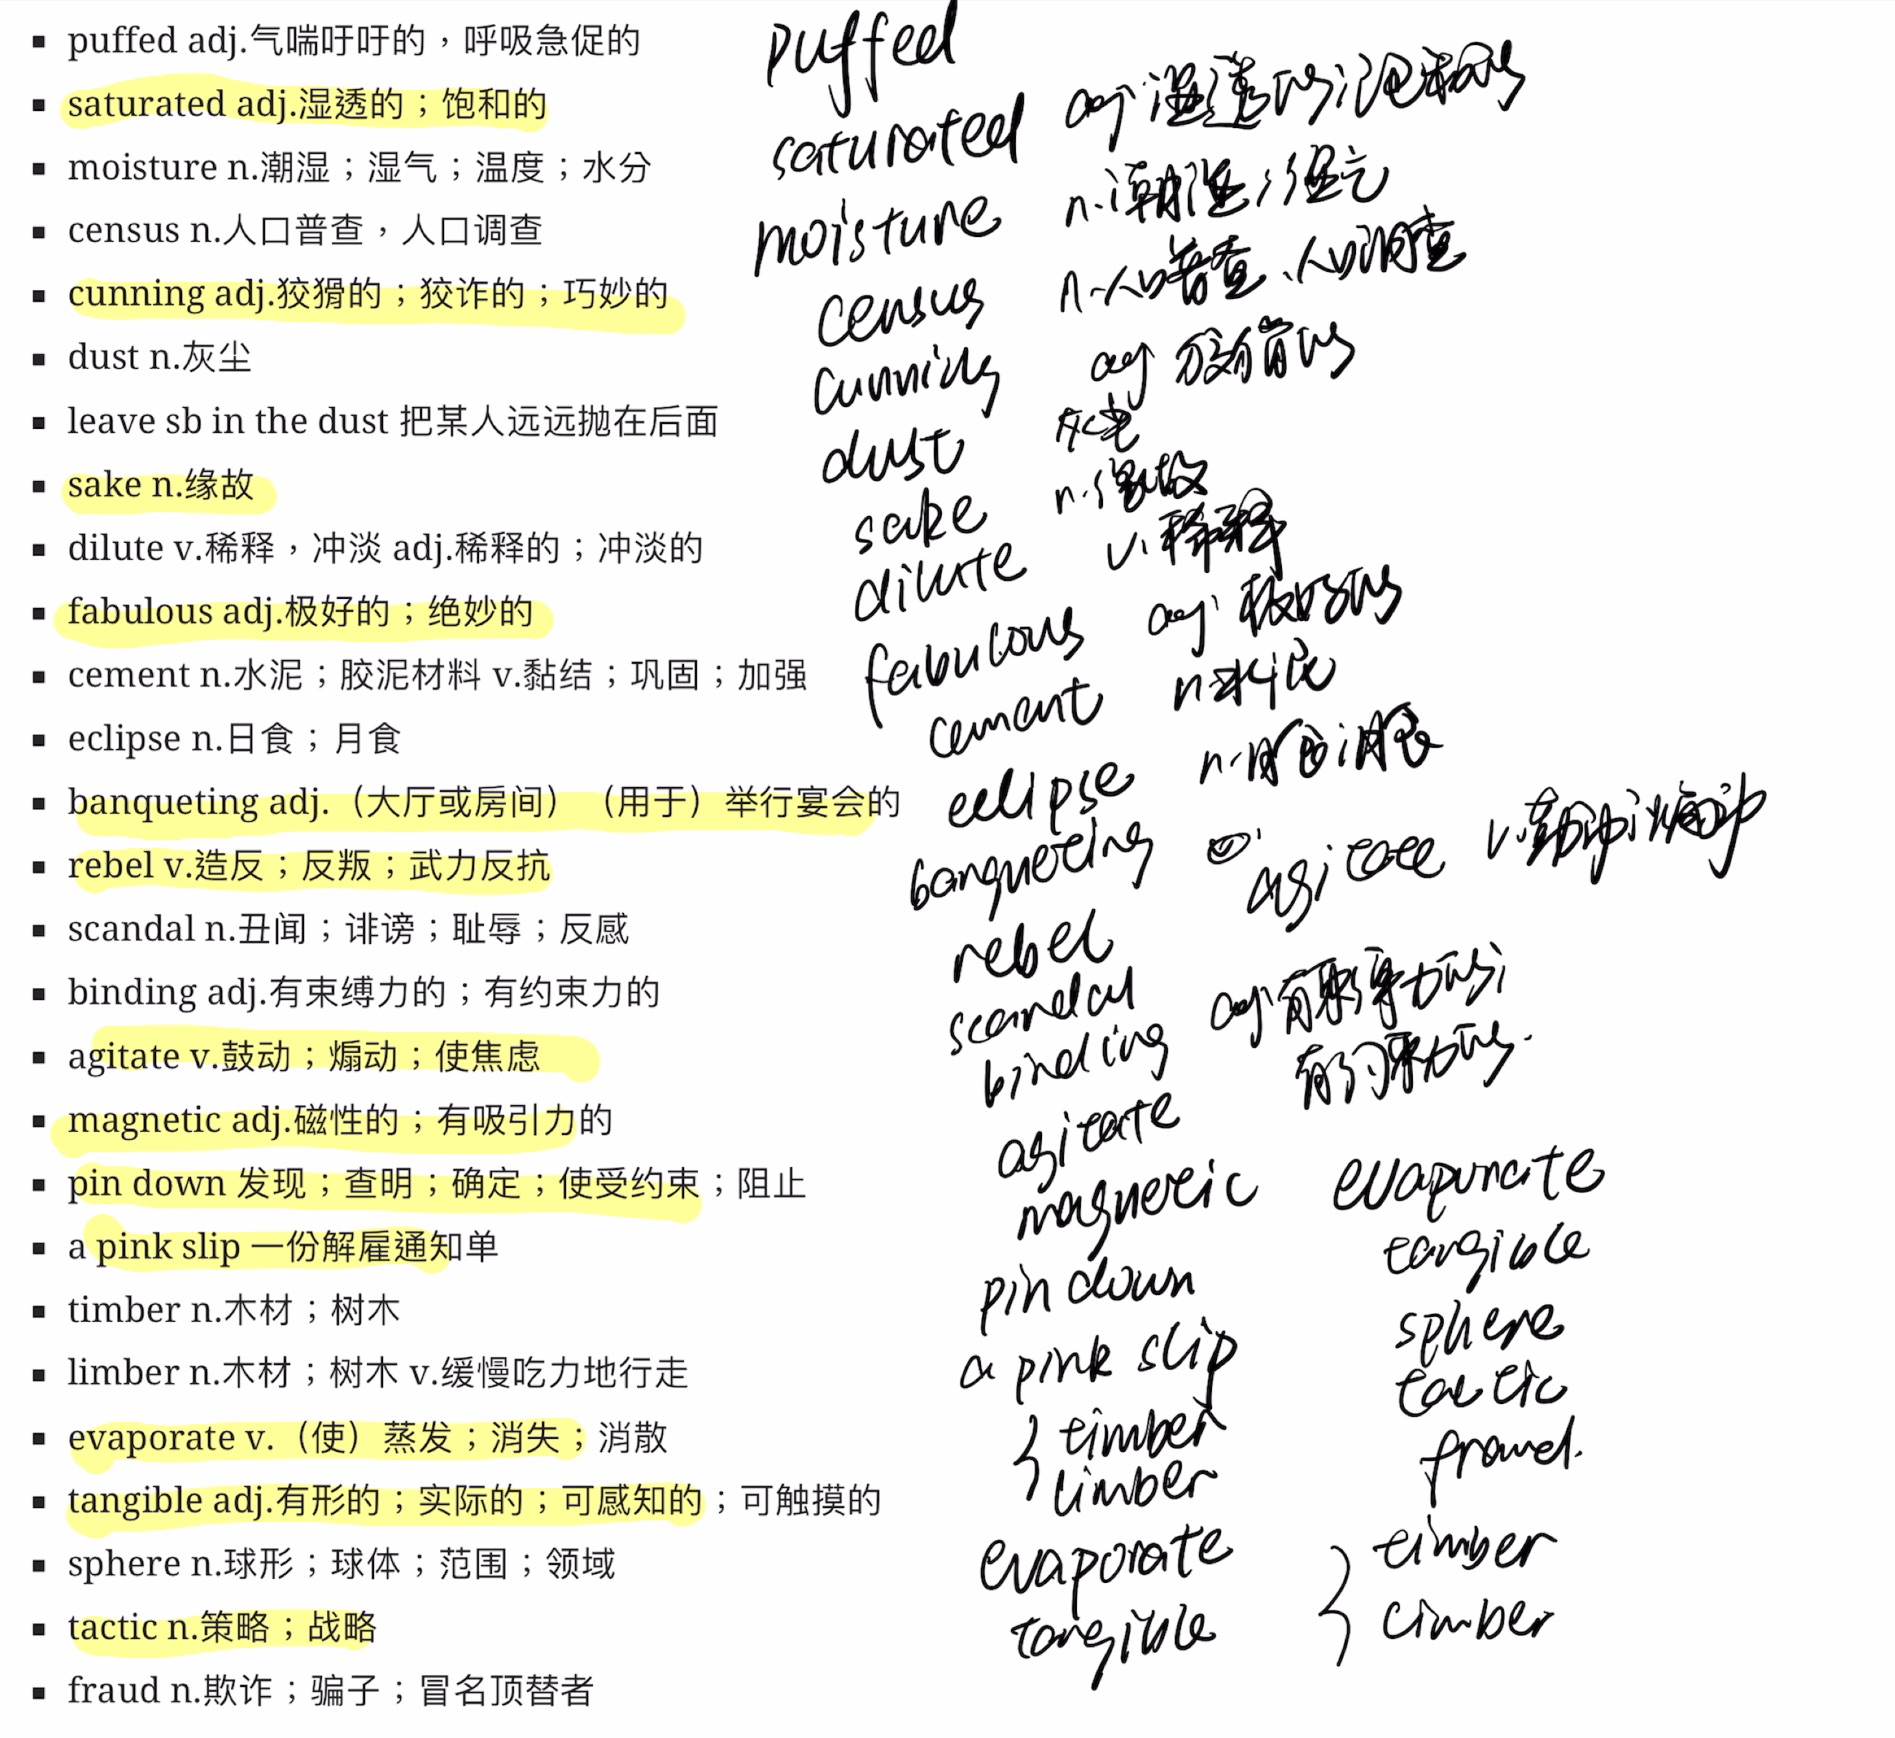 ▪ puffed adj.气喘吁吁的，呼吸急促的
▪ saturated adj.湿透的；饱和的
▪ moisture n.潮湿；湿气；温度；水分
▪ census n.人口普查，人口调查
▪ cunning adj.狡猾的；狡诈的；巧妙的
▪ dust n.灰尘
▪ leave sb in the dust 把某人远远抛在后面
▪ sake n.缘故
▪ dilute v.稀释，冲淡 adj.稀释的；冲淡的
▪ fabulous adj.极好的；绝妙的
▪ cement n.水泥；胶泥材料 v.黏结；巩固；加强
▪ eclipse n.日食；月食
▪ banqueting adj.（大厅或房间）（用于）举行宴会的
▪ rebel v.造反；反叛；武力反抗
▪ scandal n.丑闻；诽谤；耻辱；反感
▪ binding adj.有束缚力的；有约束力的
▪ agitate v.鼓动；煽动；使焦虑
▪ magnetic adj.磁性的；有吸引力的
▪ pin down 发现；查明；确定；使受约束；阻止
▪ a pink slip 一份解雇通知单
▪ timber n.木材；树木
▪ limber n.木材；树木 v.缓慢吃力地行走
▪ evaporate v.（使）蒸发；消失；消散
▪ tangible adj.有形的；实际的；可感知的；可触摸的
▪ sphere n.球形；球体；范围；领域
▪ tactic n.策略；战略
▪ fraud n.欺诈；骗子；冒名顶替者
puffed
saturated adj 湿透的；饱和的
moisture n.潮湿；湿气
census n.人口普查、人口调查
cunning adj
dust 灰尘
sake n.缘故
dilute v.稀释
fabulous adj 极好的
cement n.水泥
eclipse n.
banqueting
agitate v.鼓动；煽动
rebel
scandal
binding adj 有束缚力的；
有约束力的.
agitate
magnetic
pin down
a pink slip
timber
limber
evaporate
tangible
evaporate
tangible
sphere
tactic
fraud.
timber
limber